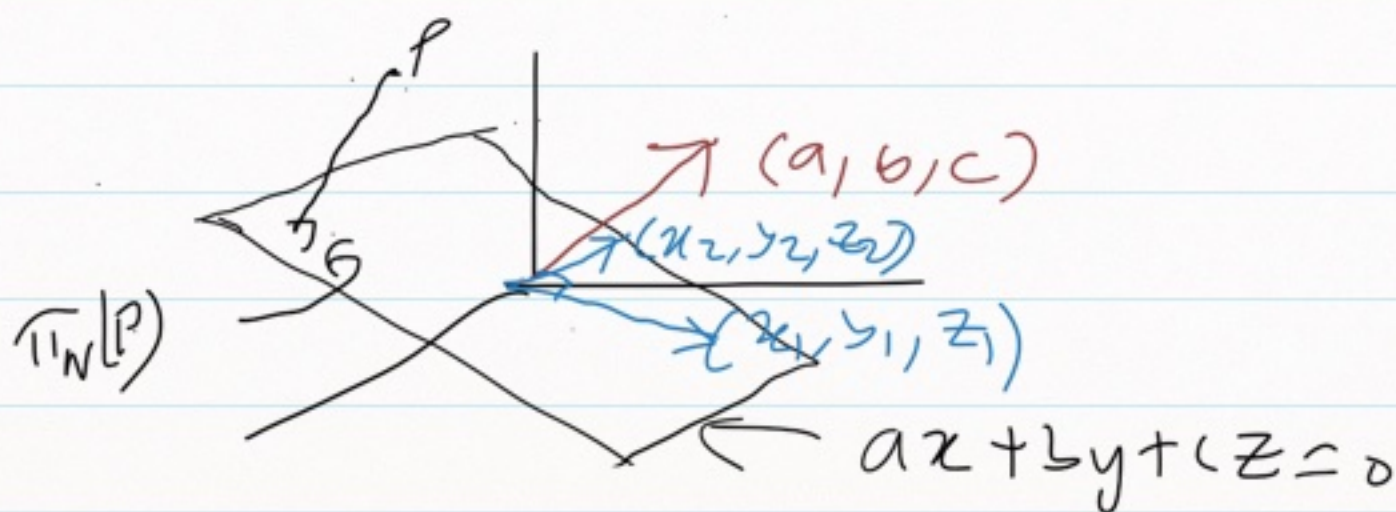 P
(a, b, c)
(x₂, y₂, z₂)
π_N(P)
(x₁, y₁, z₁)
ax + by + cz = 0